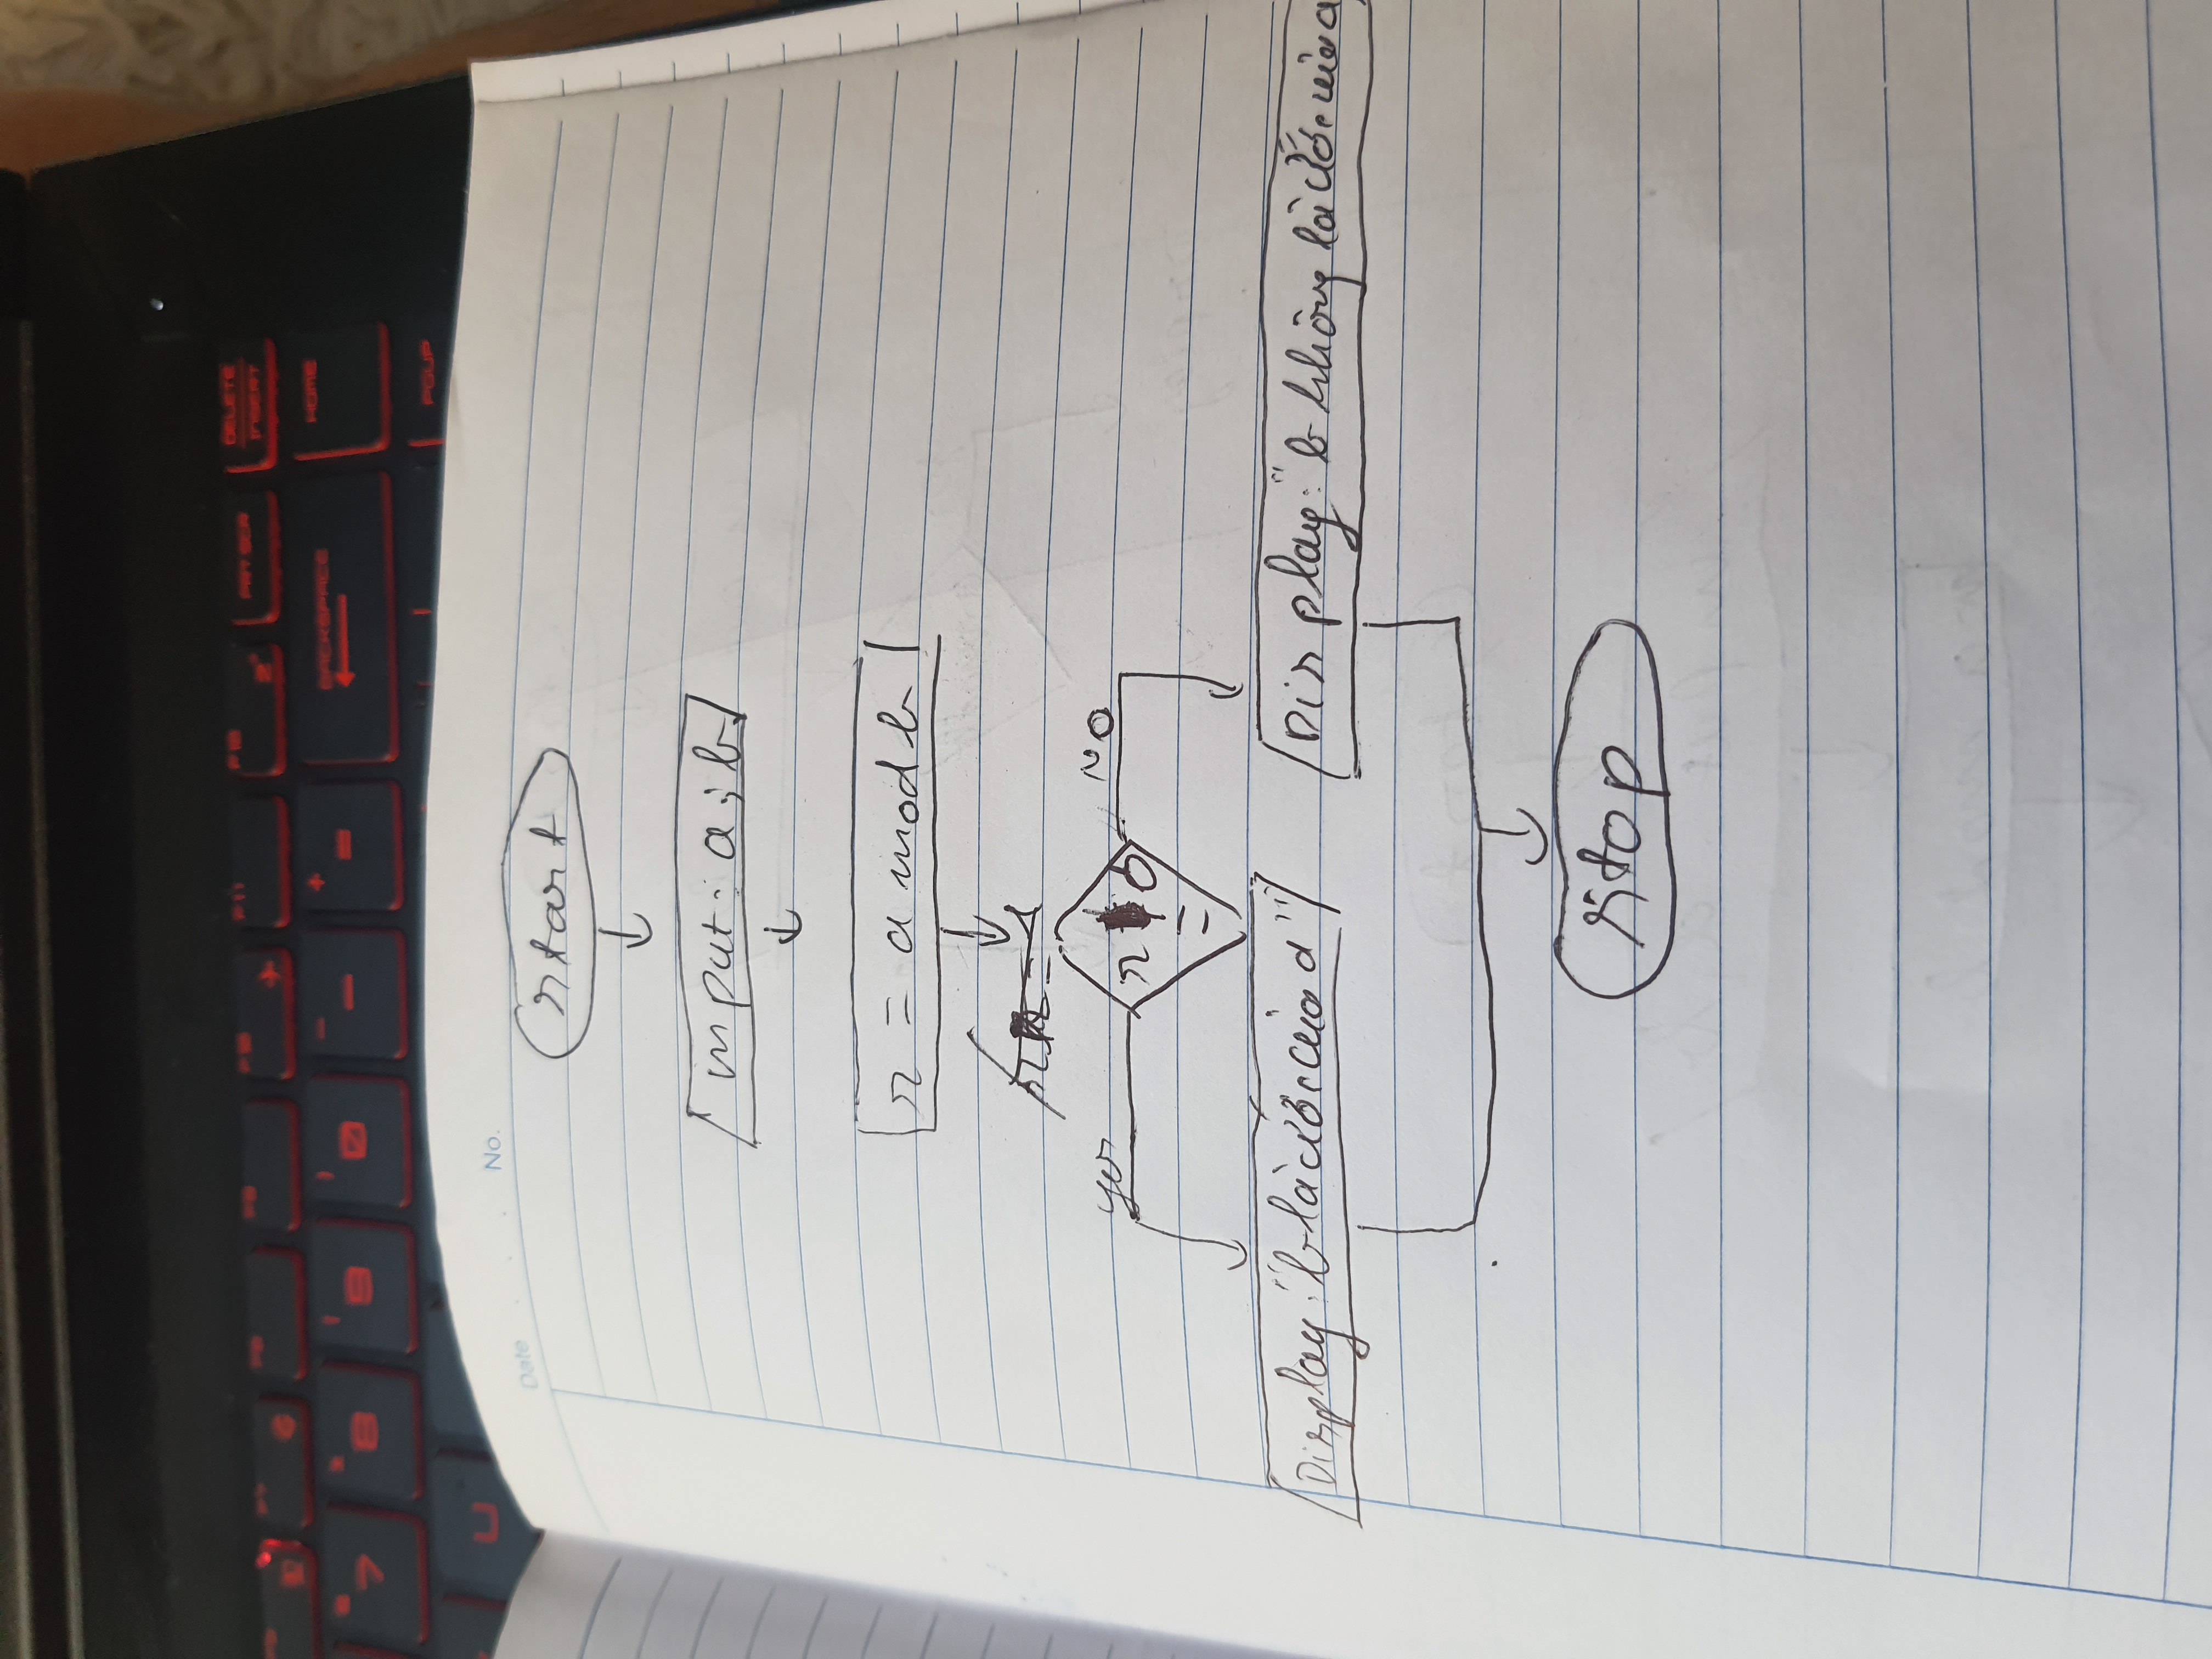 F10
F11
PRT SCR
DELETE
INSERT
7
8
9
0
-
+ =
BACKSPACE
HOME
U
PGUP
Date
No.
start
input: a; b
r = a mod b
yes
r = 0
NO
Display: "b là ước của a"
Display: "b không là ước của a
stop